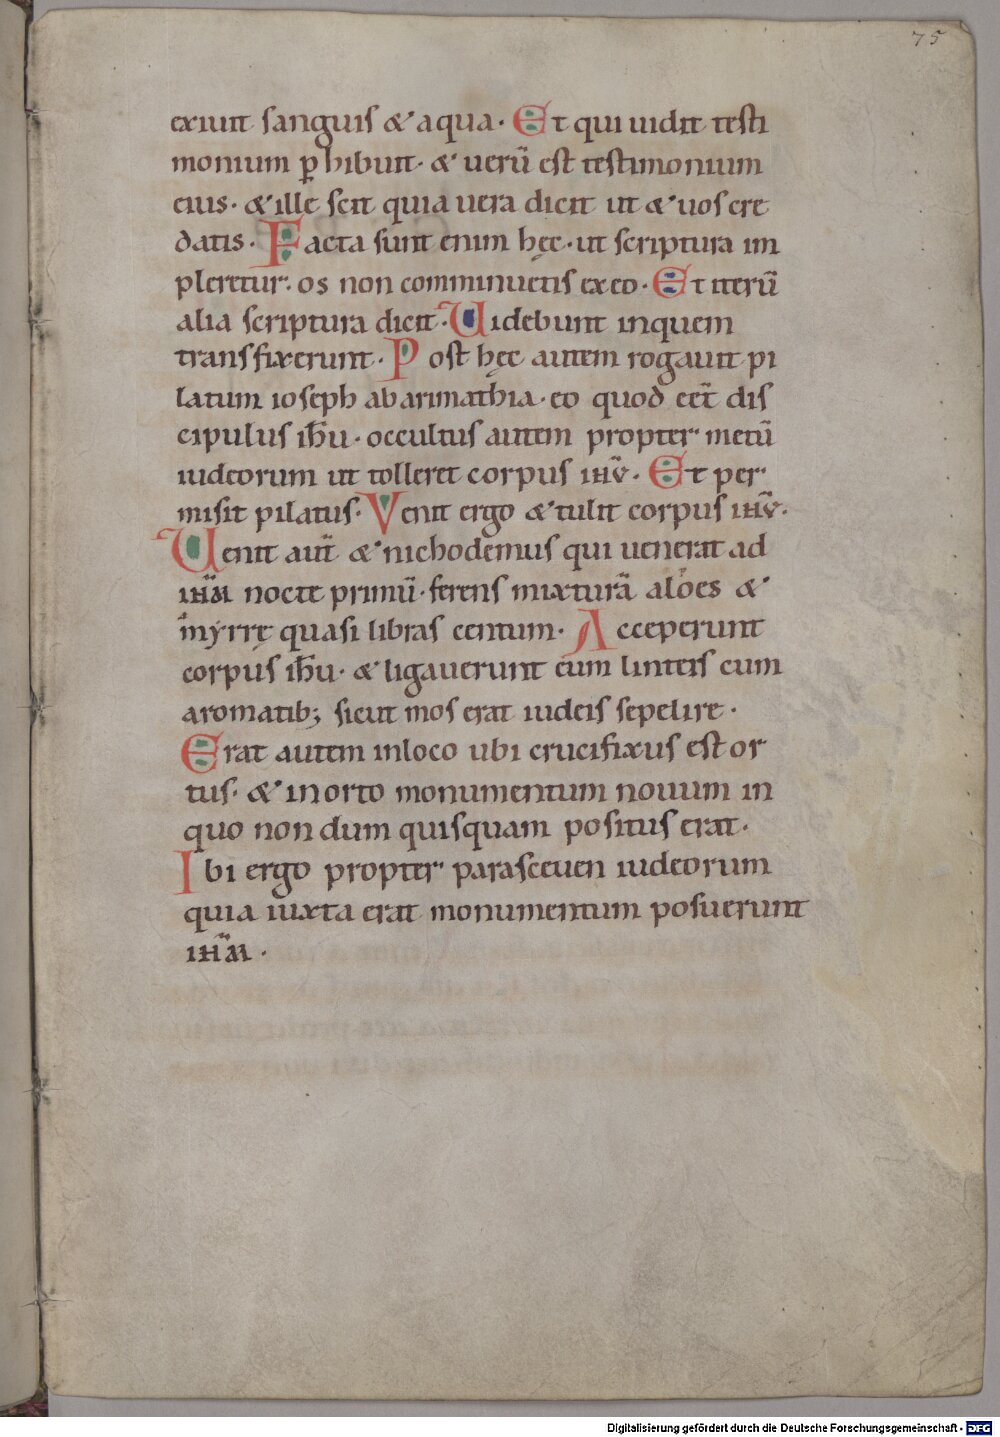 75
exiuit sanguis & aqua · Et qui uidit testi
monium ꝑhibuit · & uerū est testimonium
eius · & ille scit quia uera dicit ut & uos cre
datis · Facta sunt enim hęc · ut scriptura im
pleretur · os non comminuetis ex eo · Et iterū
alia scriptura dicit · Uidebunt inquem
transfixerunt · Post hęc autem rogauit pi
latum ioseph ab arimathia · eo quod eēt dis
cipulus ih̄u · occultus autem propter metū
iudeorum ut tolleret corpus ihv̄ · Et per
misit pilatus · Venit ergo & tulit corpus ihv̄ ·
Uenit aut̄ & nichodemus qui uenerat ad
ihm̄ nocte primū · ferens mixturā aloes &
myrrę quasi libras centum · Acceperunt
corpus ih̄u · & ligauerunt eum linteis cum
aromatib; sicut mos erat iudeis sepelire ·
Erat autem inloco ubi crucifixus est or
tus · & in orto monumentum nouum in
quo non dum quisquam positus erat ·
Ibi ergo propter parasceuen iudeorum
quia iuxta erat monumentum posuerunt
ihm̄ ·
Digitalisierung gefördert durch die Deutsche Forschungsgemeinschaft - DFG